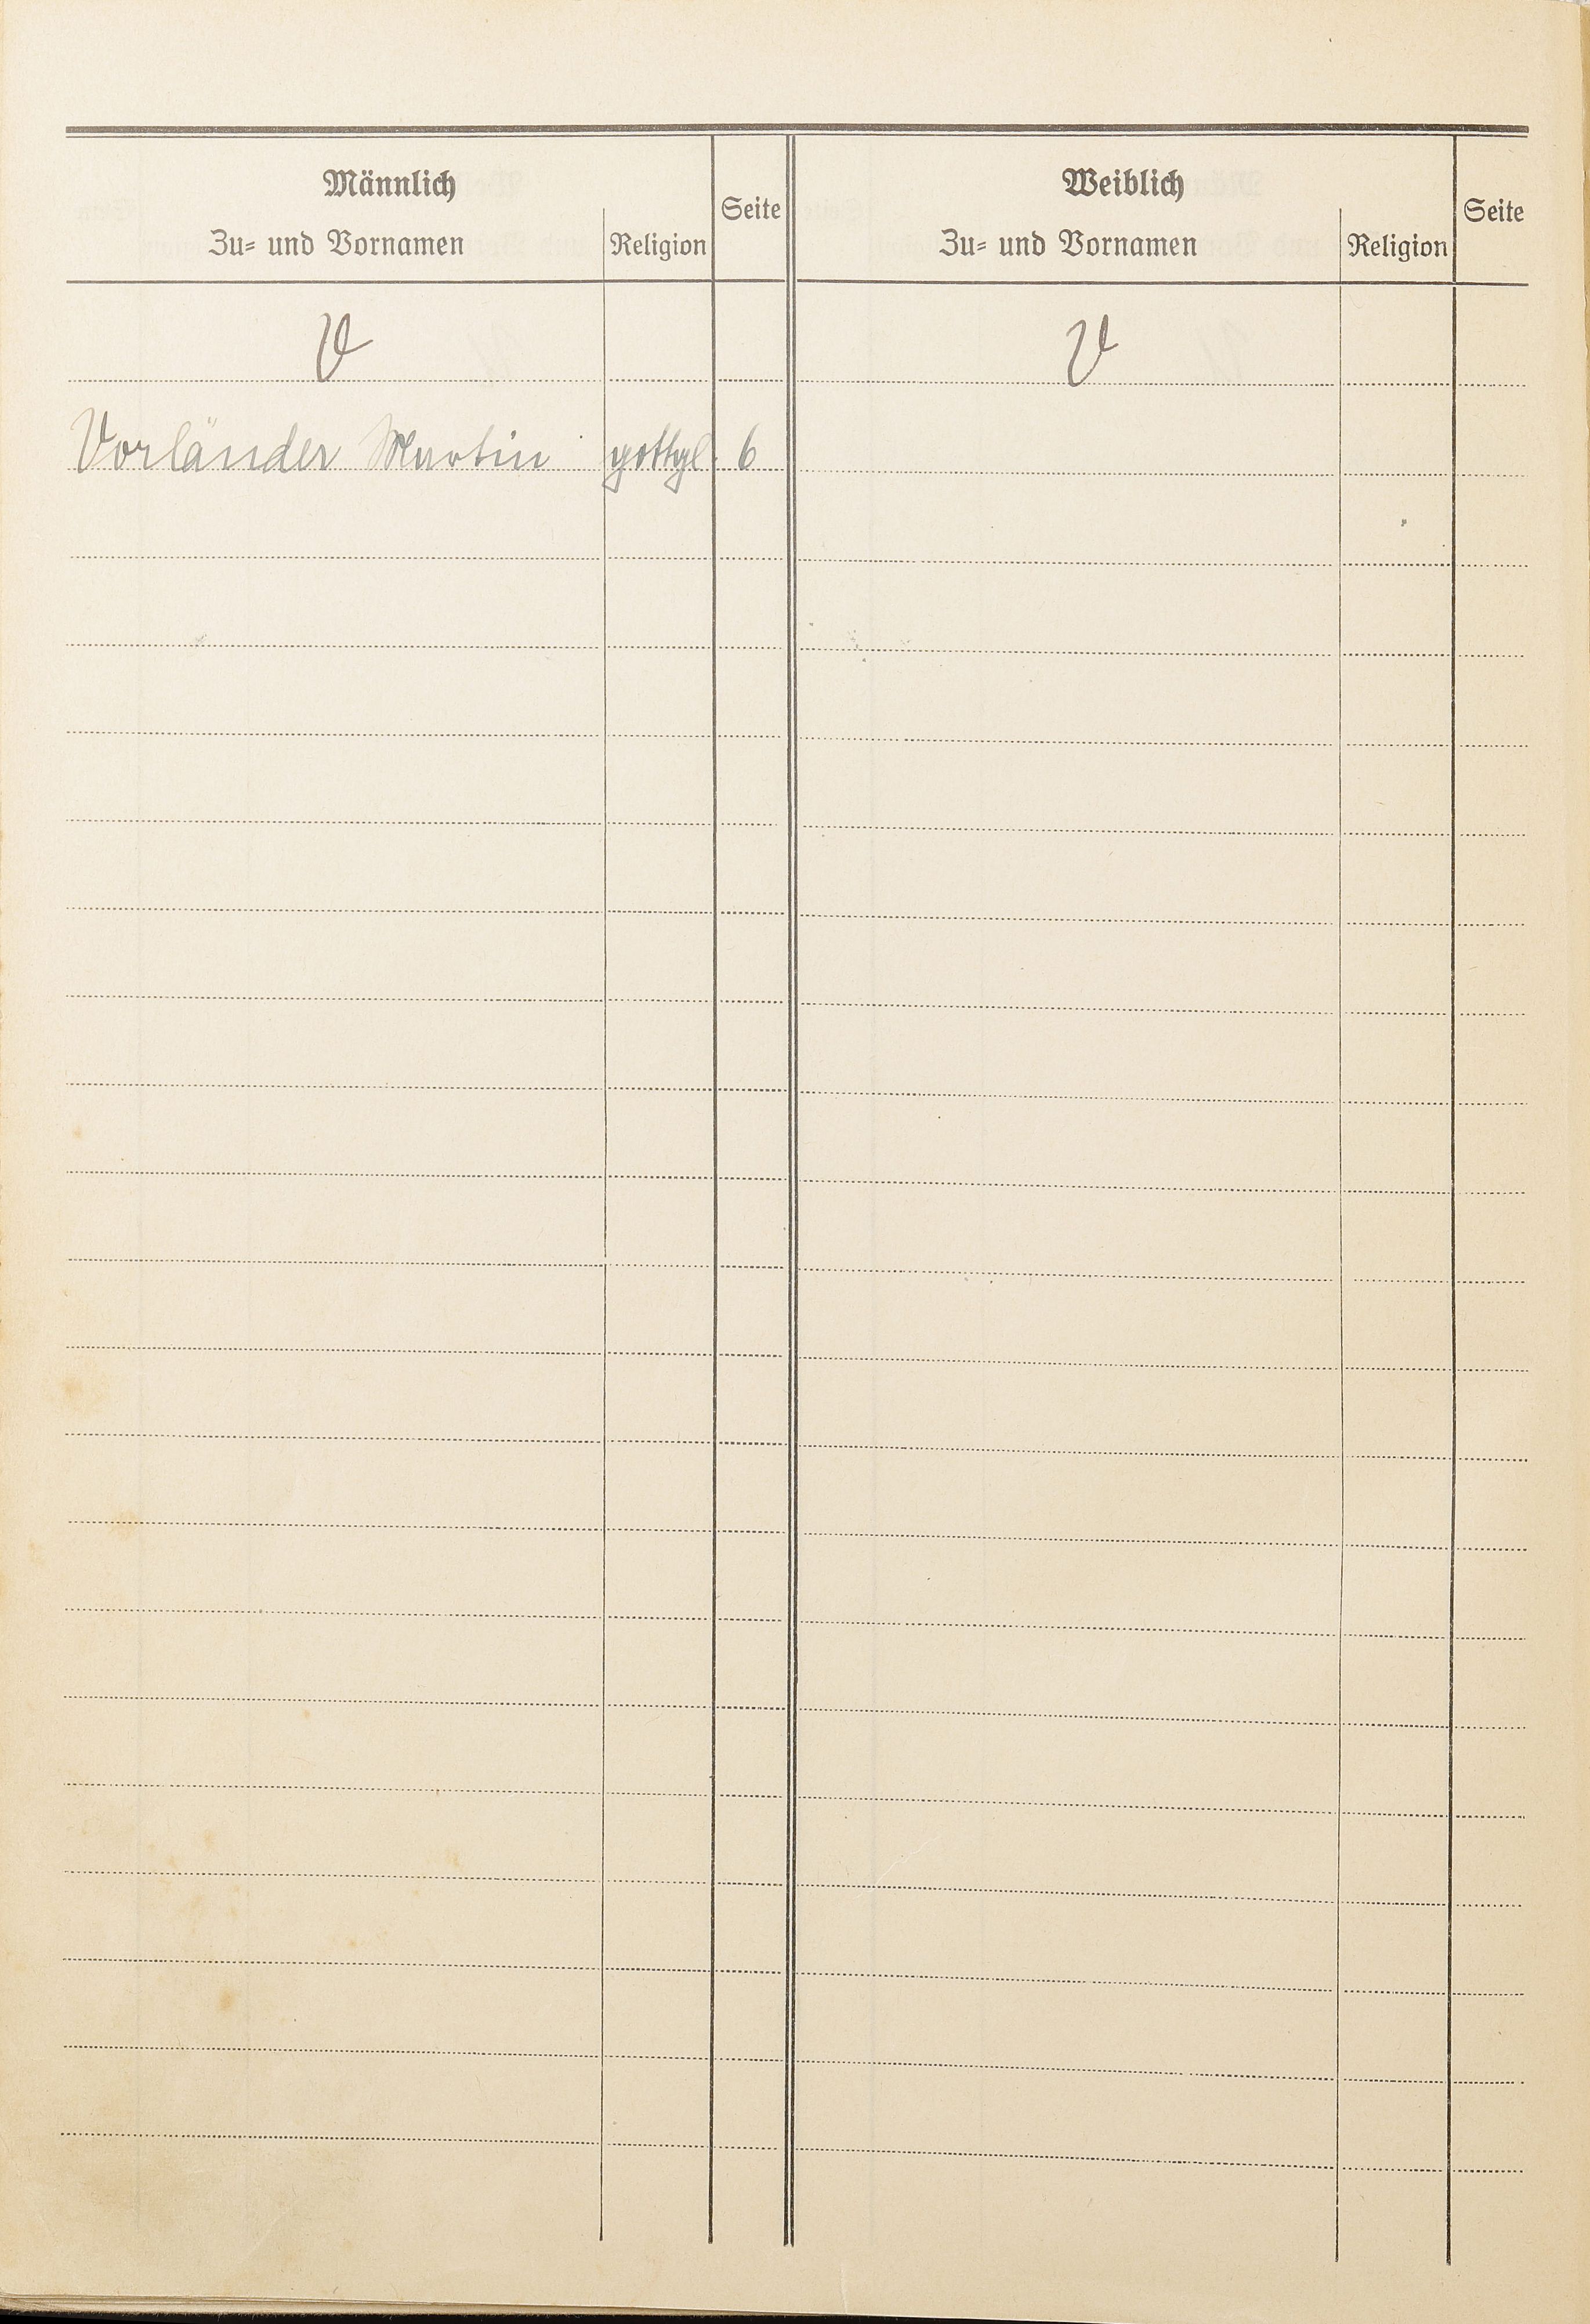 Männlich
Zu- und Vornamen Religion Seite
Weiblich
Zu- und Vornamen Religion Seite
V V
Vorländer Martin gottgl. 6